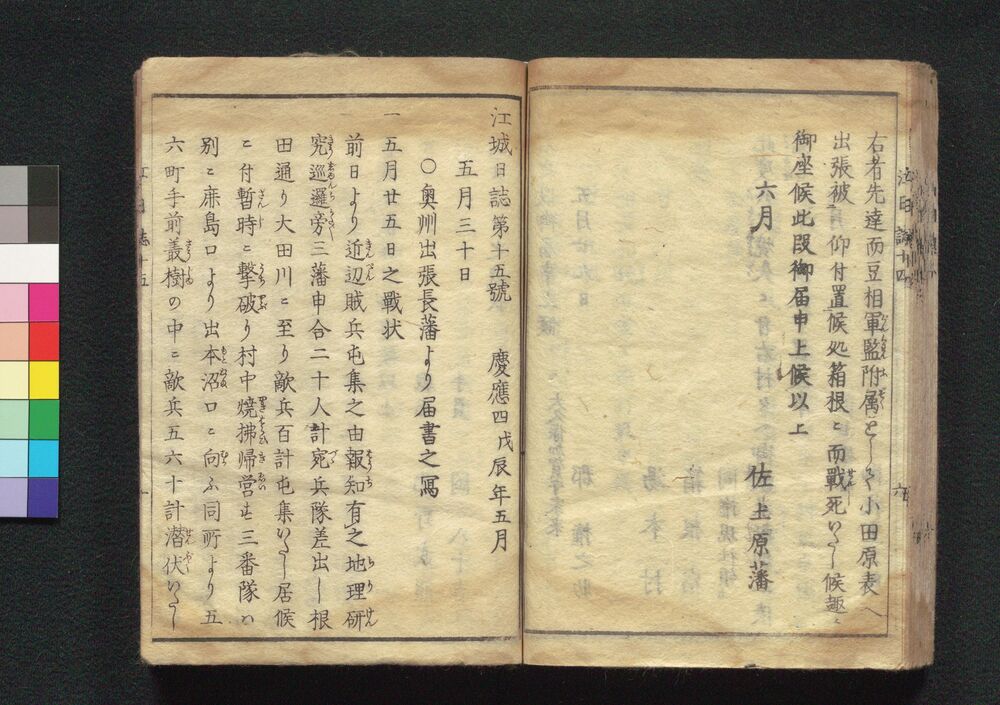 右者先達而豆相軍監附属として小田原表へ
出張被 仰付置候処箱根ニ而戰死いたし候趣ニ
御座候此段御届申上候以上
六月
佐土原藩
江城日誌第十五號 慶應四戊辰年五月
五月三十日
〇奥州出張長藩より届書之寫
一 五月廿五日之戰状
前日より近辺賊兵屯集之由報知有之地理研
究巡邏旁三藩申合二十人計宛兵隊差出し根
田通り大田川ニ至り敵兵百計屯集いたし居候
ニ付暫時ニ撃破り村中焼拂帰営せ三番隊ハ
別ニ鹿島口より出本沼口ニ向ふ同所より五
六町手前叢樹の中ニ敵兵五六十計潜伏いたし